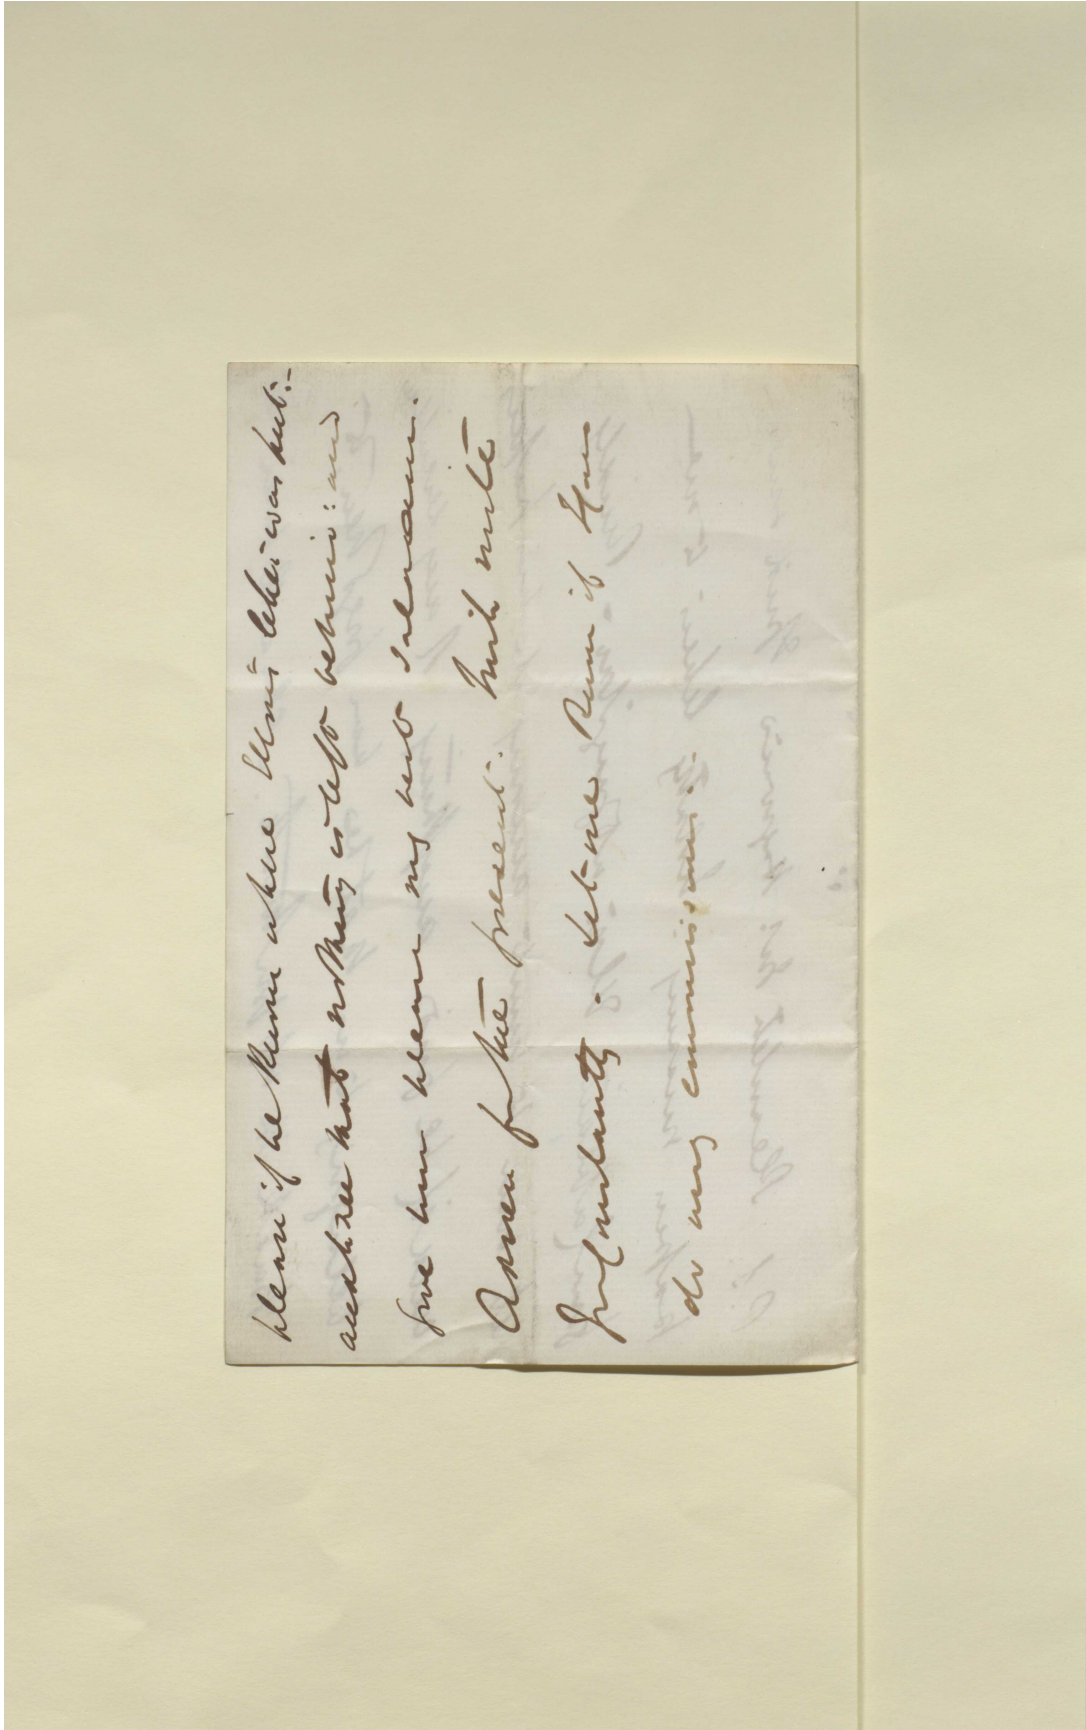 please if he knows where Lewis' letter was put:-
and see that nothing is left behind: and
give him please my best salaam.
Adieu for the present. Will write
constantly. Let me know if I can
do any commissions.